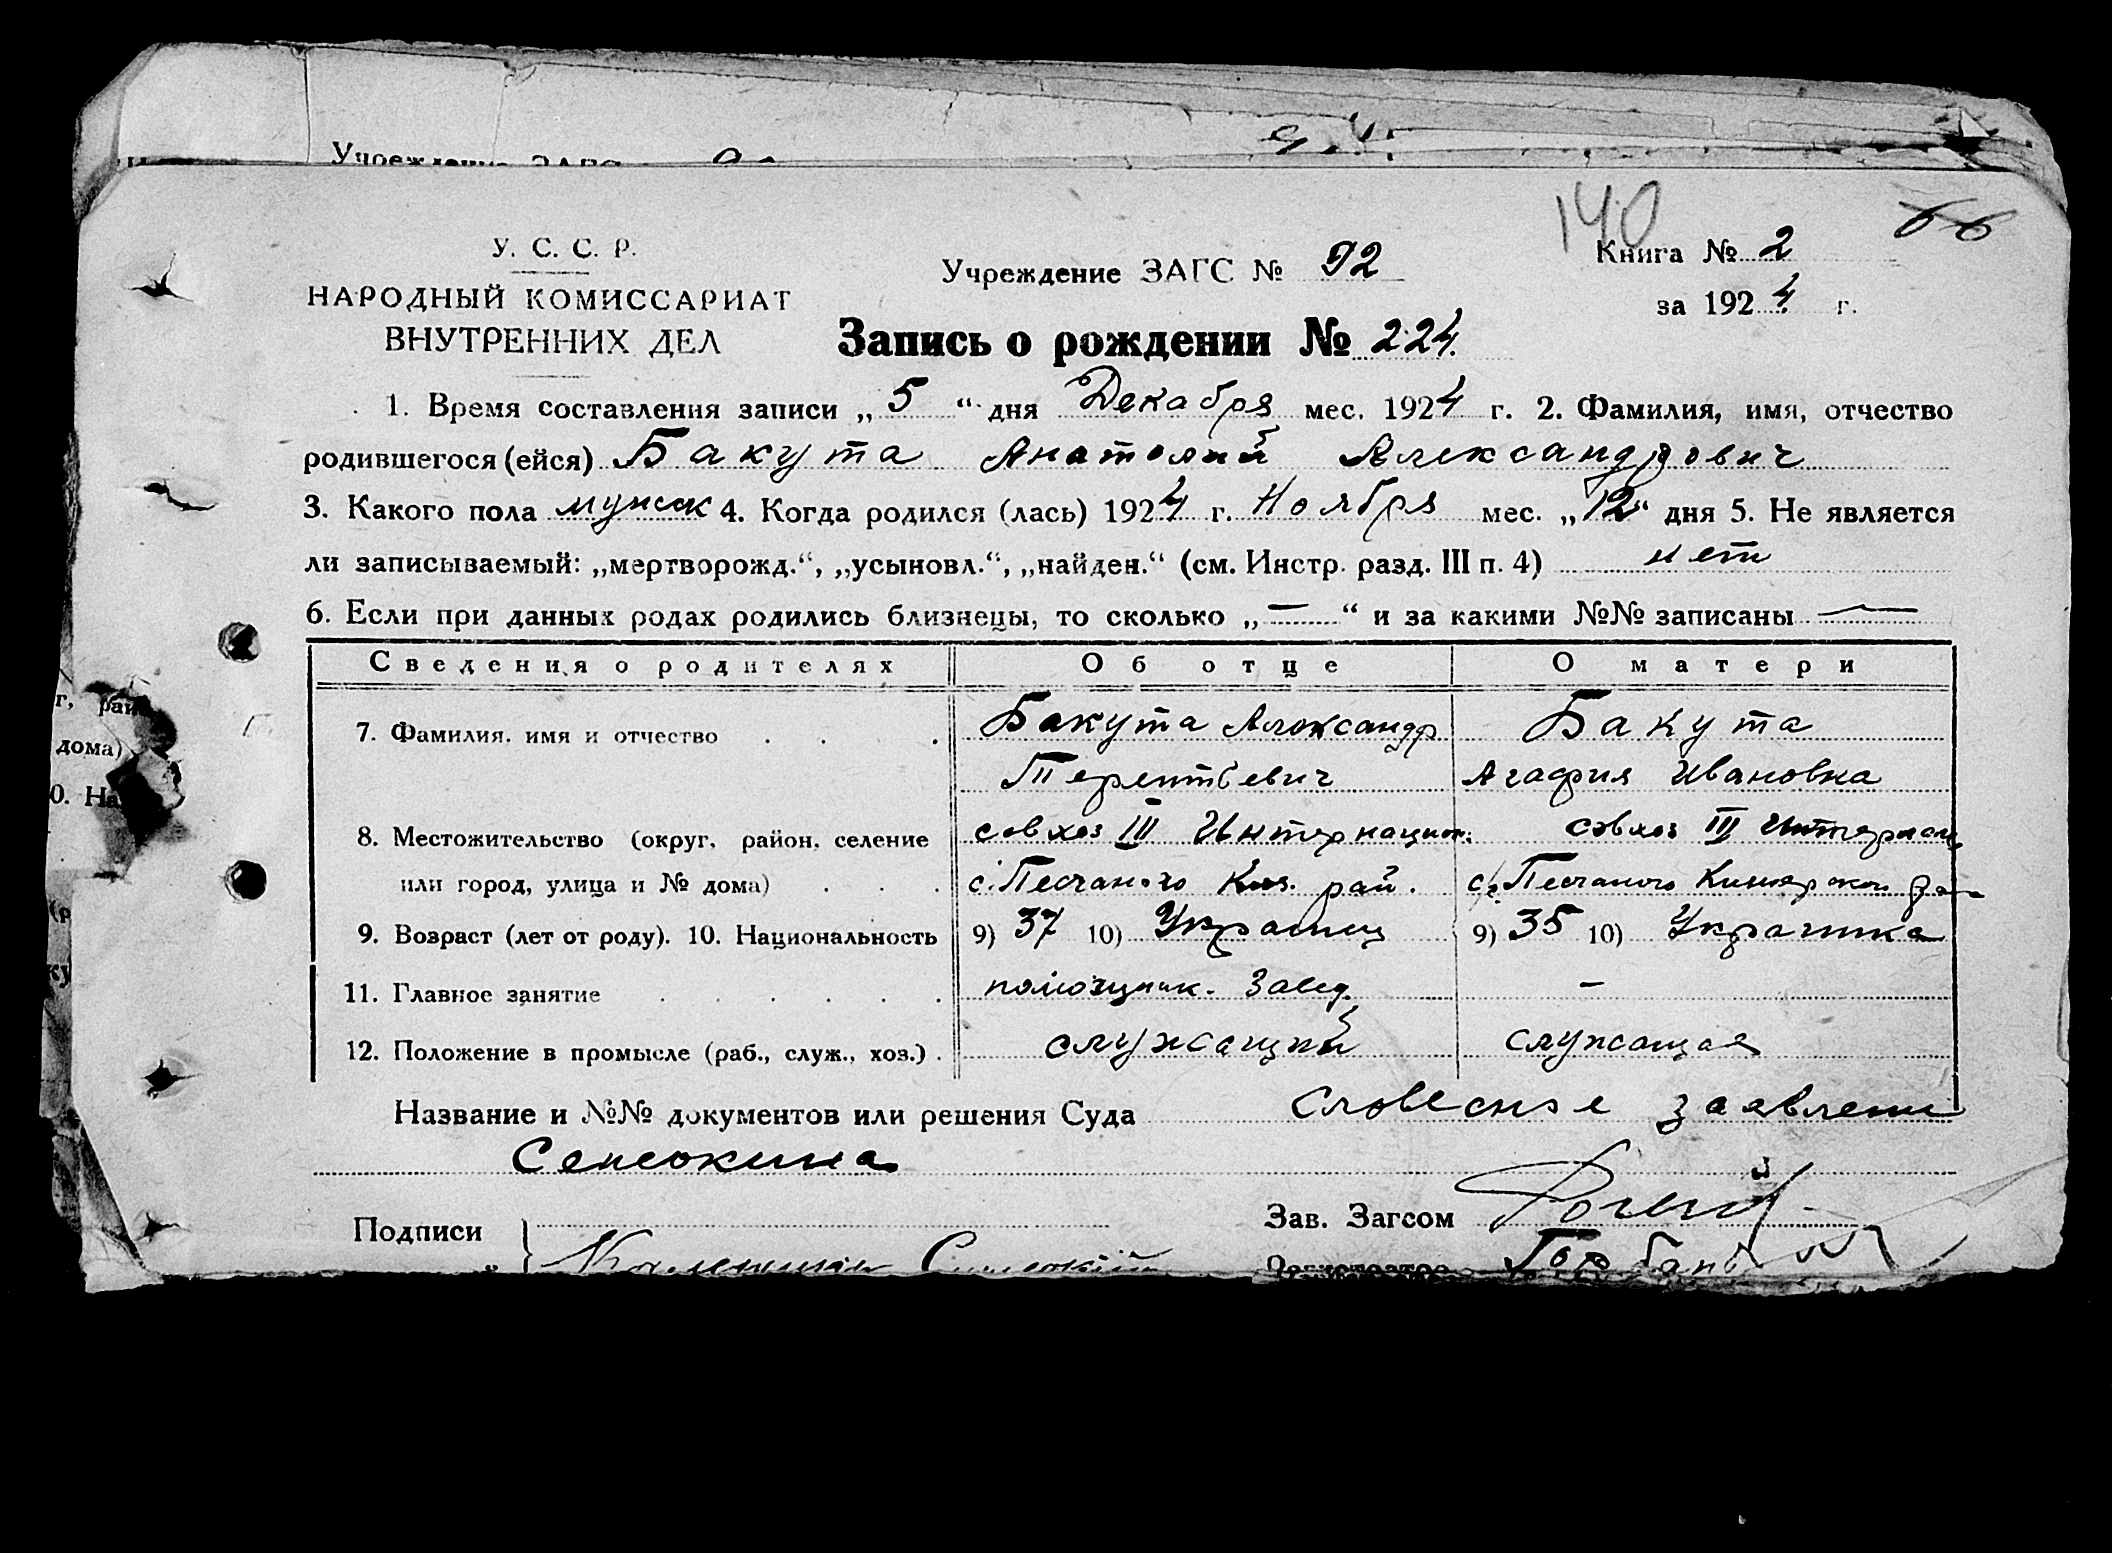 140
66
У. С. С. Р.
НАРОДНЫЙ КОМИССАРИАТ
ВНУТРЕННИХ ДЕЛ
Учреждение ЗАГС № 92
Книга № 2
за 1924 г.
Запись о рождении № 224.
1. Время составления записи „5“ дня Декабря мес. 1924 г. 2. Фамилия, имя, отчество
родившегося (ейся) Бакута Анатолий Александрович
3. Какого пола мужск 4. Когда родился (лась) 1924 г. Ноября мес. „12“ дня 5. Не является
ли записываемый: „мертворожд.“, „усыновл.“, „найден.“ (см. Инстр. разд. III п. 4) нет
6. Если при данных родах родились близнецы, то сколько „—“ и за какими №№ записаны —
Сведения о родителях Об отце О матери
7. Фамилия, имя и отчество Бакута Александр Бакута
Терентьевич Агафия Ивановна
8. Местожительство (округ, район, селение совхоз III Интернацион. совхоз III Интернац
или город, улица и № дома) с. Песчаного рай. с. Песчаного
9. Возраст (лет от роду). 10. Национальность 9) 37 10) Украинец 9) 35 10) Украинка
11. Главное занятие помощник. Завед. –
12. Положение в промысле (раб., служ., хоз.) служащий служащая
Название и №№ документов или решения Суда словесное заявление
Сенокина
Подписи
Зав. Загсом
Горбань